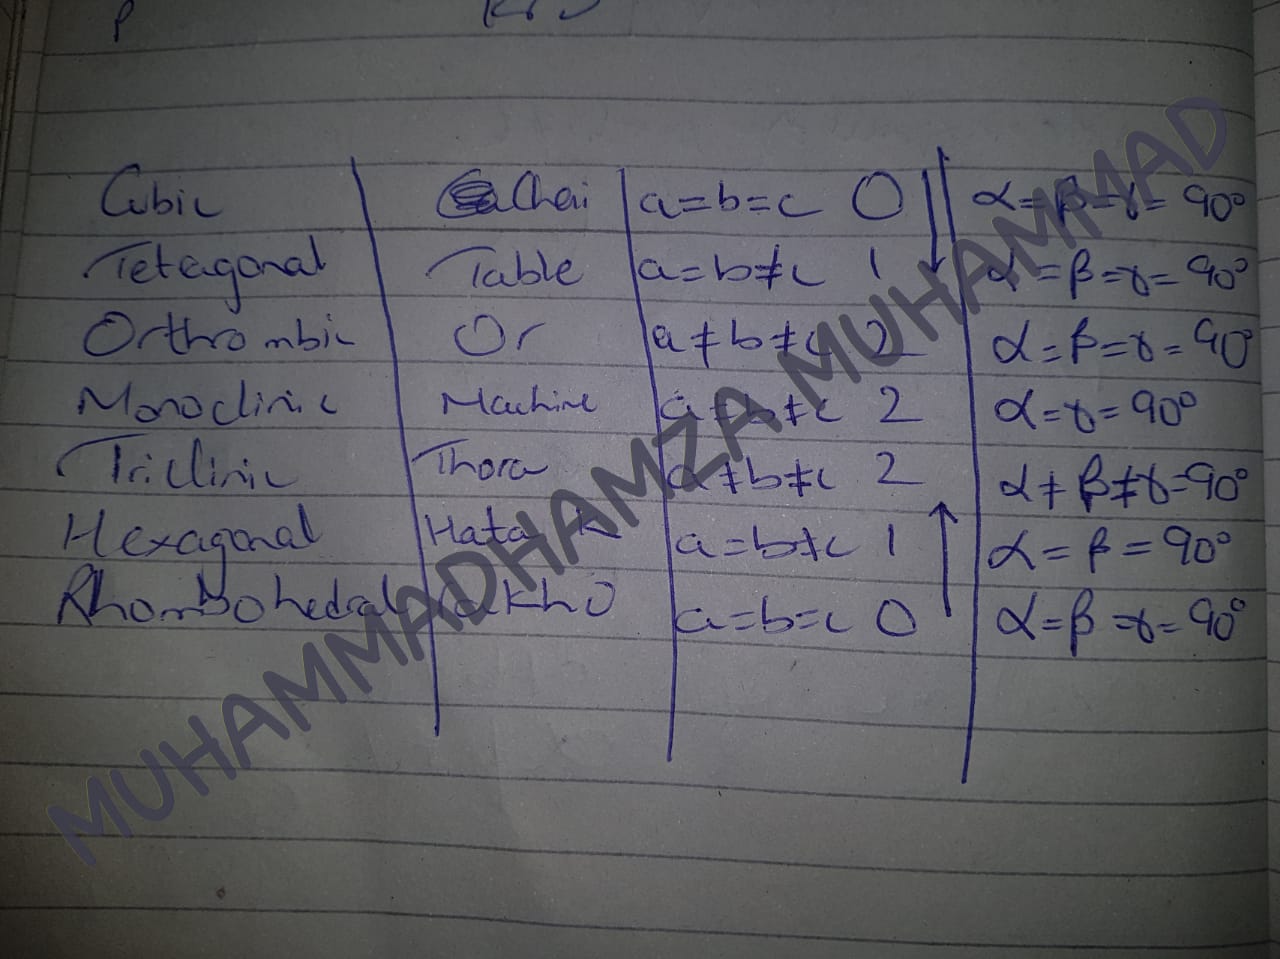 Cubic Chai a=b=c 0 α=β=γ= 90°
Tetagonal Table a=b≠c 1 α=β=γ= 90°
Orthrombic Or a≠b≠c 2 α=β=γ= 90°
Monoclinic Machine a≠b≠c 2 α=γ= 90°
Triclinic Thora a≠b≠c 2 α≠β≠γ=90°
Hexagonal Hata k a=b≠c 1 α=β= 90°
Rhombohedral rakho a=b=c 0 α=β=γ= 90°
MUHAMMADHAMZA MUHAMMAD